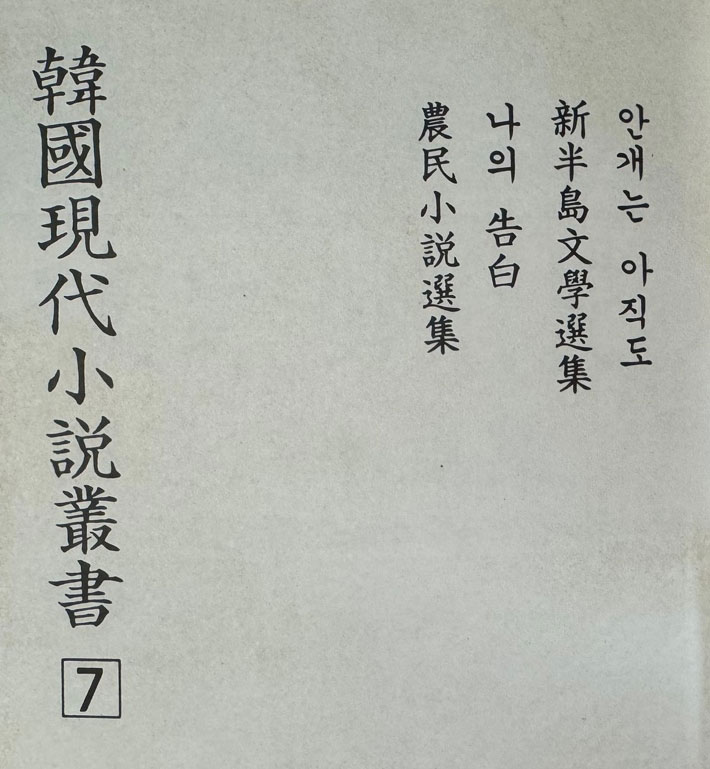 안개는 아직도
新半島文學選集
나의 告白
農民小説選集
韓國現代小説叢書
7